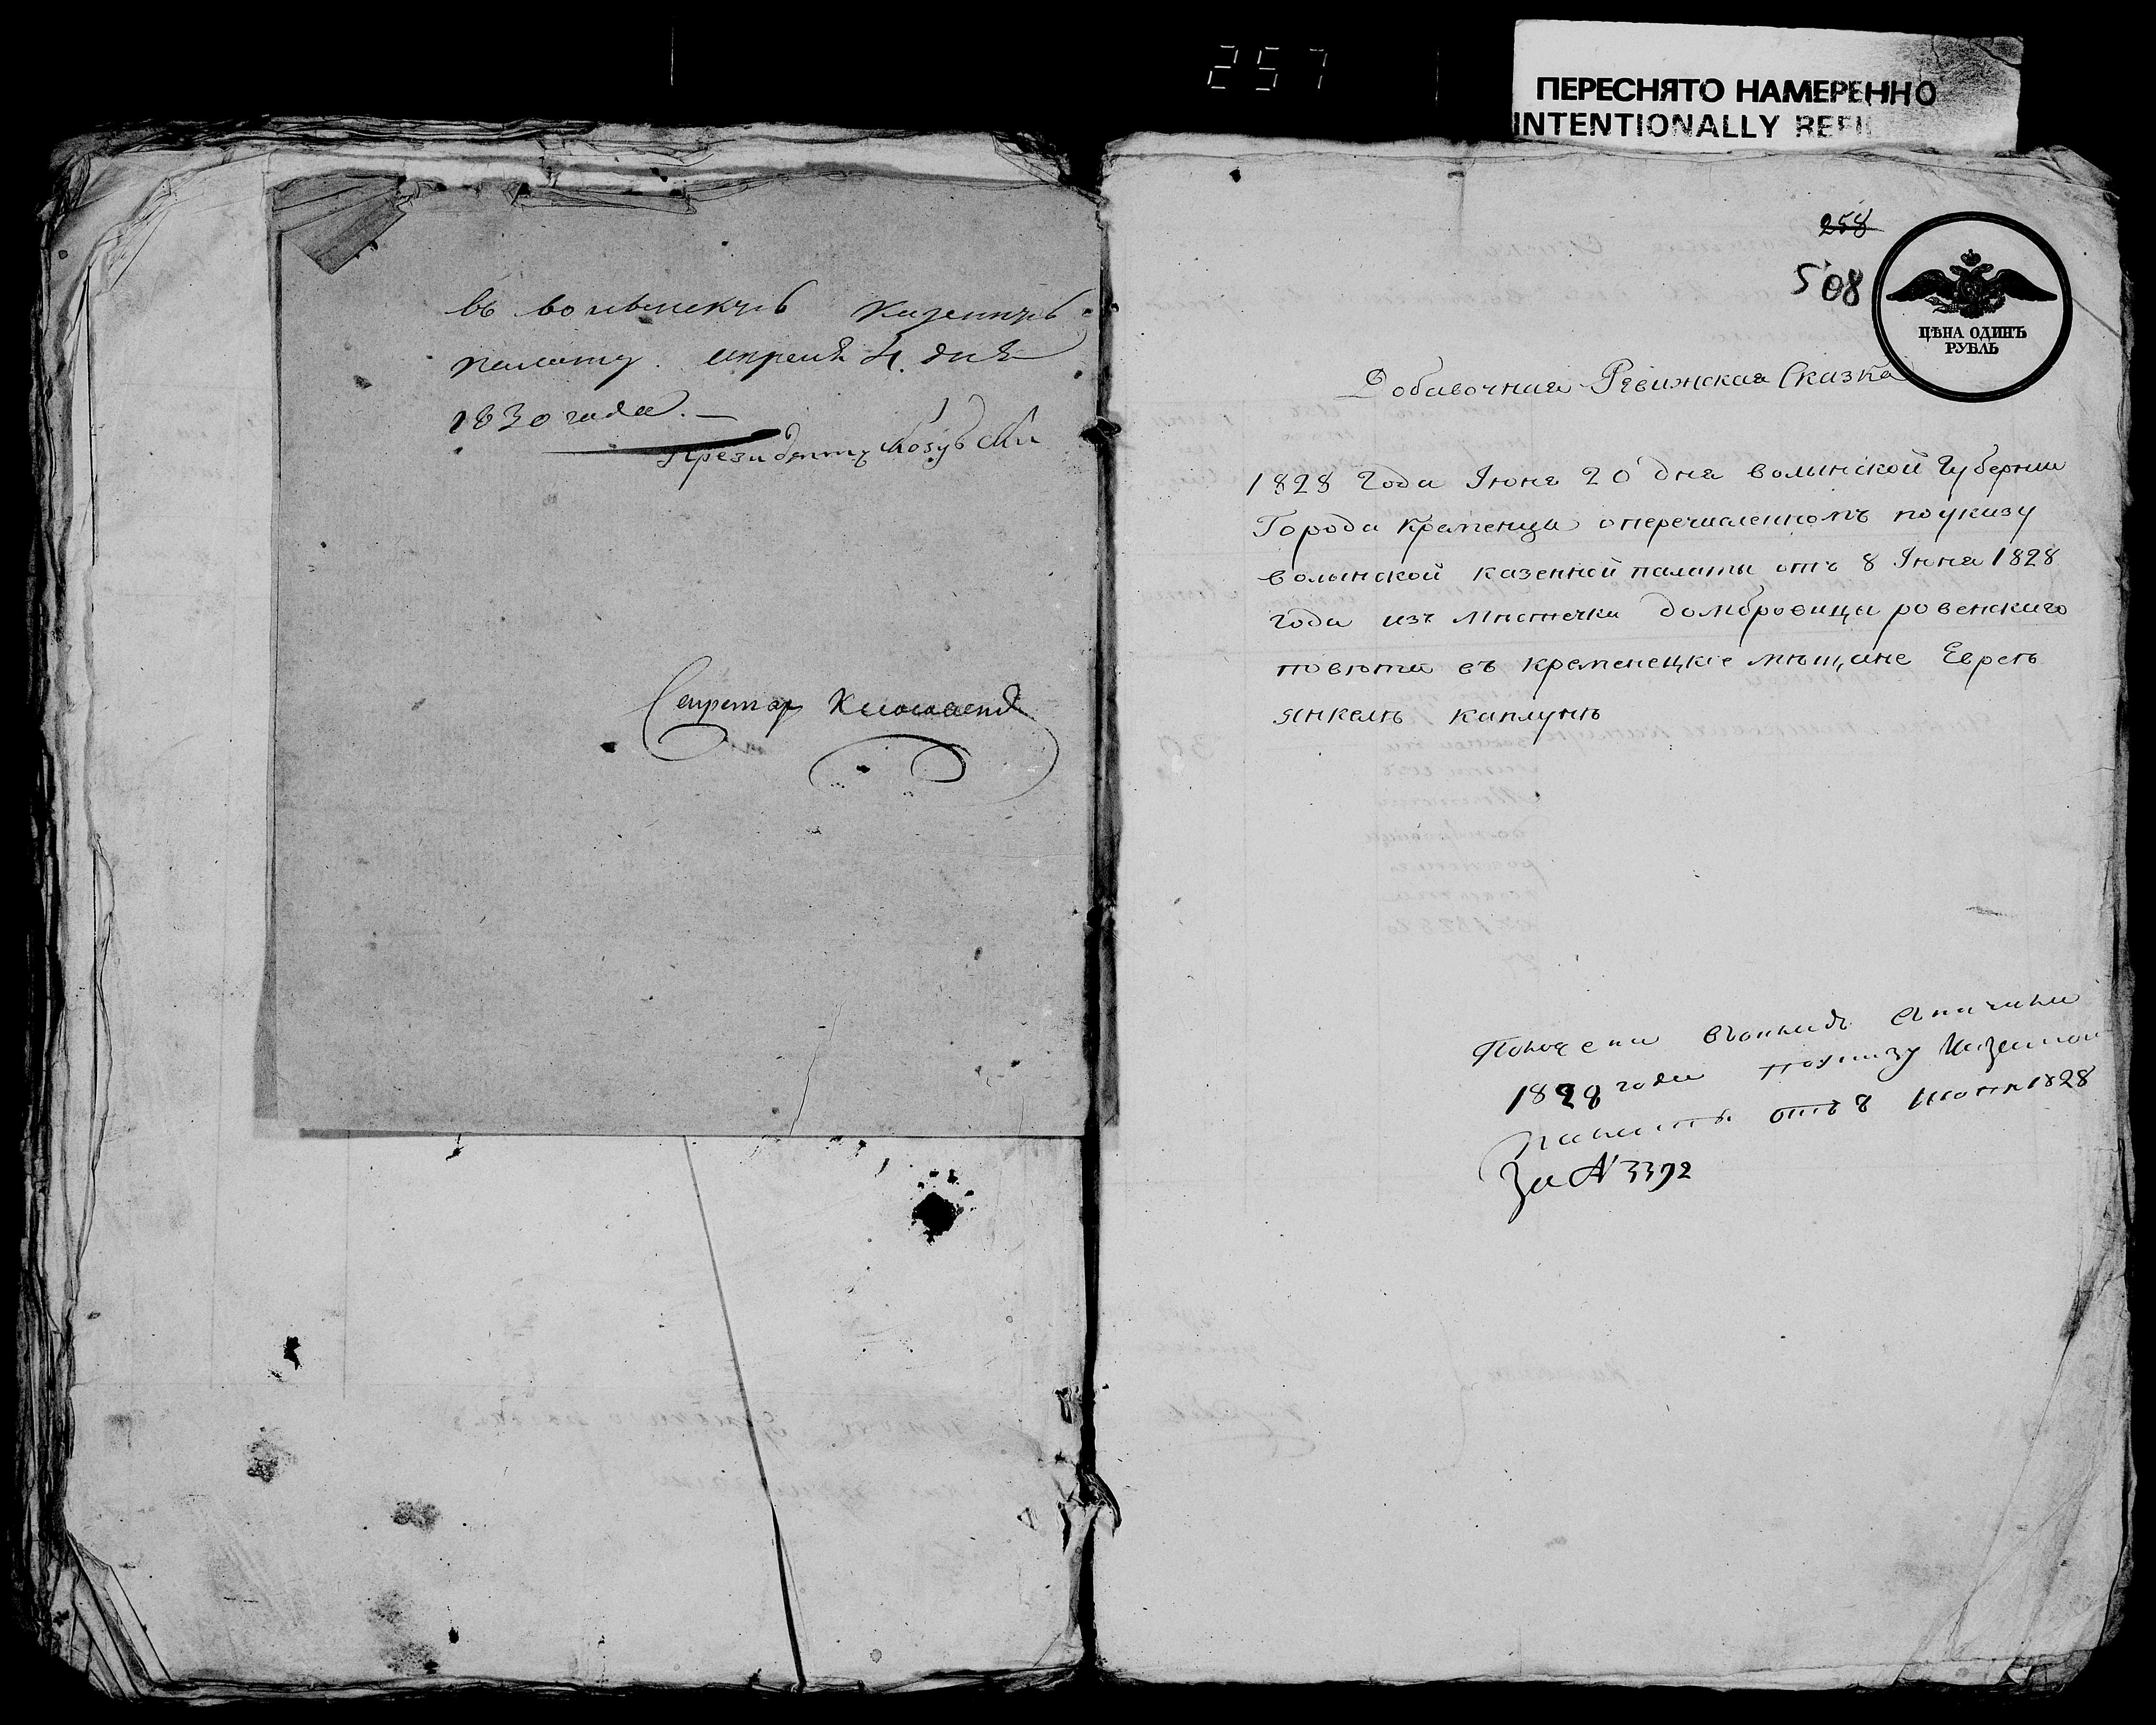 257
ПЕРЕСНЯТО НАМЕРЕННО
INTENTIONALLY REFI
въ волынскую казенную
палату. апреля 4. дня
1830 года.
Президентъ
Секретар
258
508
ЦѢНА ОДИНЪ
РУБЛЬ
Добавочная Ревижская Сказка
1828 Года Июня 20 дня волынской Губернии
Города Кременца о перечисленномъ по указу
волынской казенной палаты отъ 8 Июня 1828
года изъ мѣстечка домбровицы ровенского
повѣта въ кременецкіе мѣщане Евреѣ
янкелѣ каплунѣ
1828 года по указу Казенной
палаты отъ 8 июня 1828
За № 3392